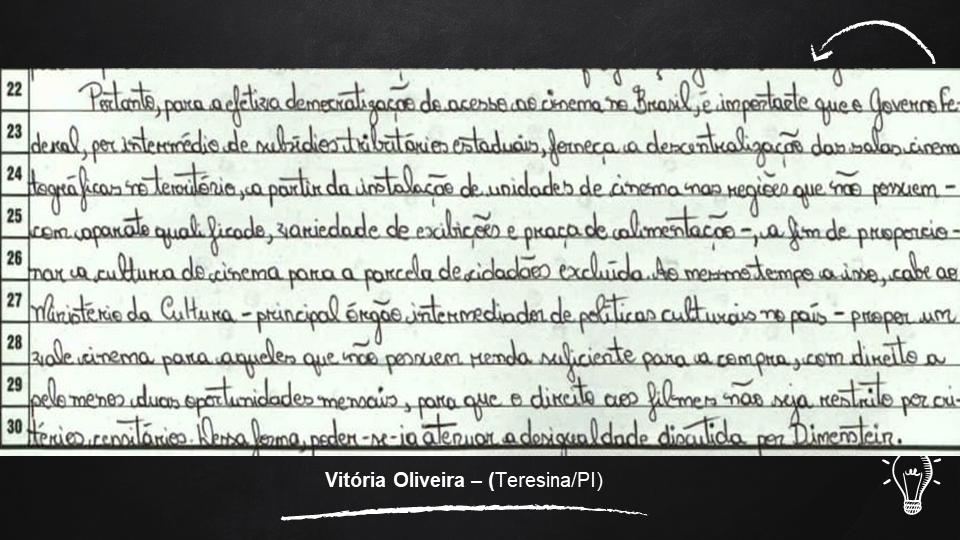 22 Portanto, para a efetiva democratização do acesso ao cinema no Brasil, é importante que o Governo Fe-
23 deral, por intermédio de subsídios tributários estaduais, forneça a descentralização das salas cinema
24 tográficas no território, a partir da instalação de unidades de cinema nas regiões que não possuem -
25 com aparato qualificado, variedade de exibições e praça de alimentação -, a fim de proporcio-
26 nar a cultura do cinema para a parcela de cidadãos excluída. Ao mesmo tempo a isso, cabe ao
27 Ministério da Cultura - principal órgão intermediador de políticas culturais no país - propor um
28 vale cinema para aqueles que não possuem renda suficiente para a compra, com direito a
29 pelo menos duas oportunidades mensais, para que o direito aos filmes não seja restrito por cri-
30 térios censitários. Dessa forma, poder-se-ia atenuar a desigualdade discutida por Dimenstein.
Vitória Oliveira – (Teresina/PI)